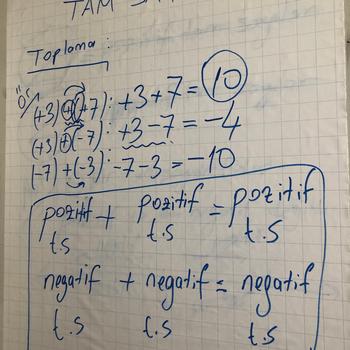 TAM
Toplama:
"0"
(+3) + (+7): +3+7 = 10
(+3) + (-7): +3-7 = -4
(-7) + (-3): -7-3 = -10
pozitif + pozitif = pozitif
t.s t.s t.s
negatif + negatif = negatif
t.s t.s t.s